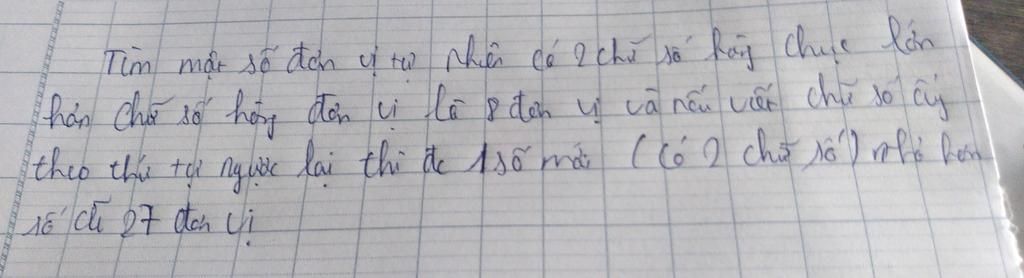 Tìm một số đơn vị tự nhiên có 2 chữ số hàng chục lớn
hơn chữ số hàng đơn vị là 8 đơn vị và nếu viết chữ số ấy
theo thứ tự ngược lại thì đc 1 số mới (có 2 chữ số) nhỏ hơn
số cũ 27 đơn vị